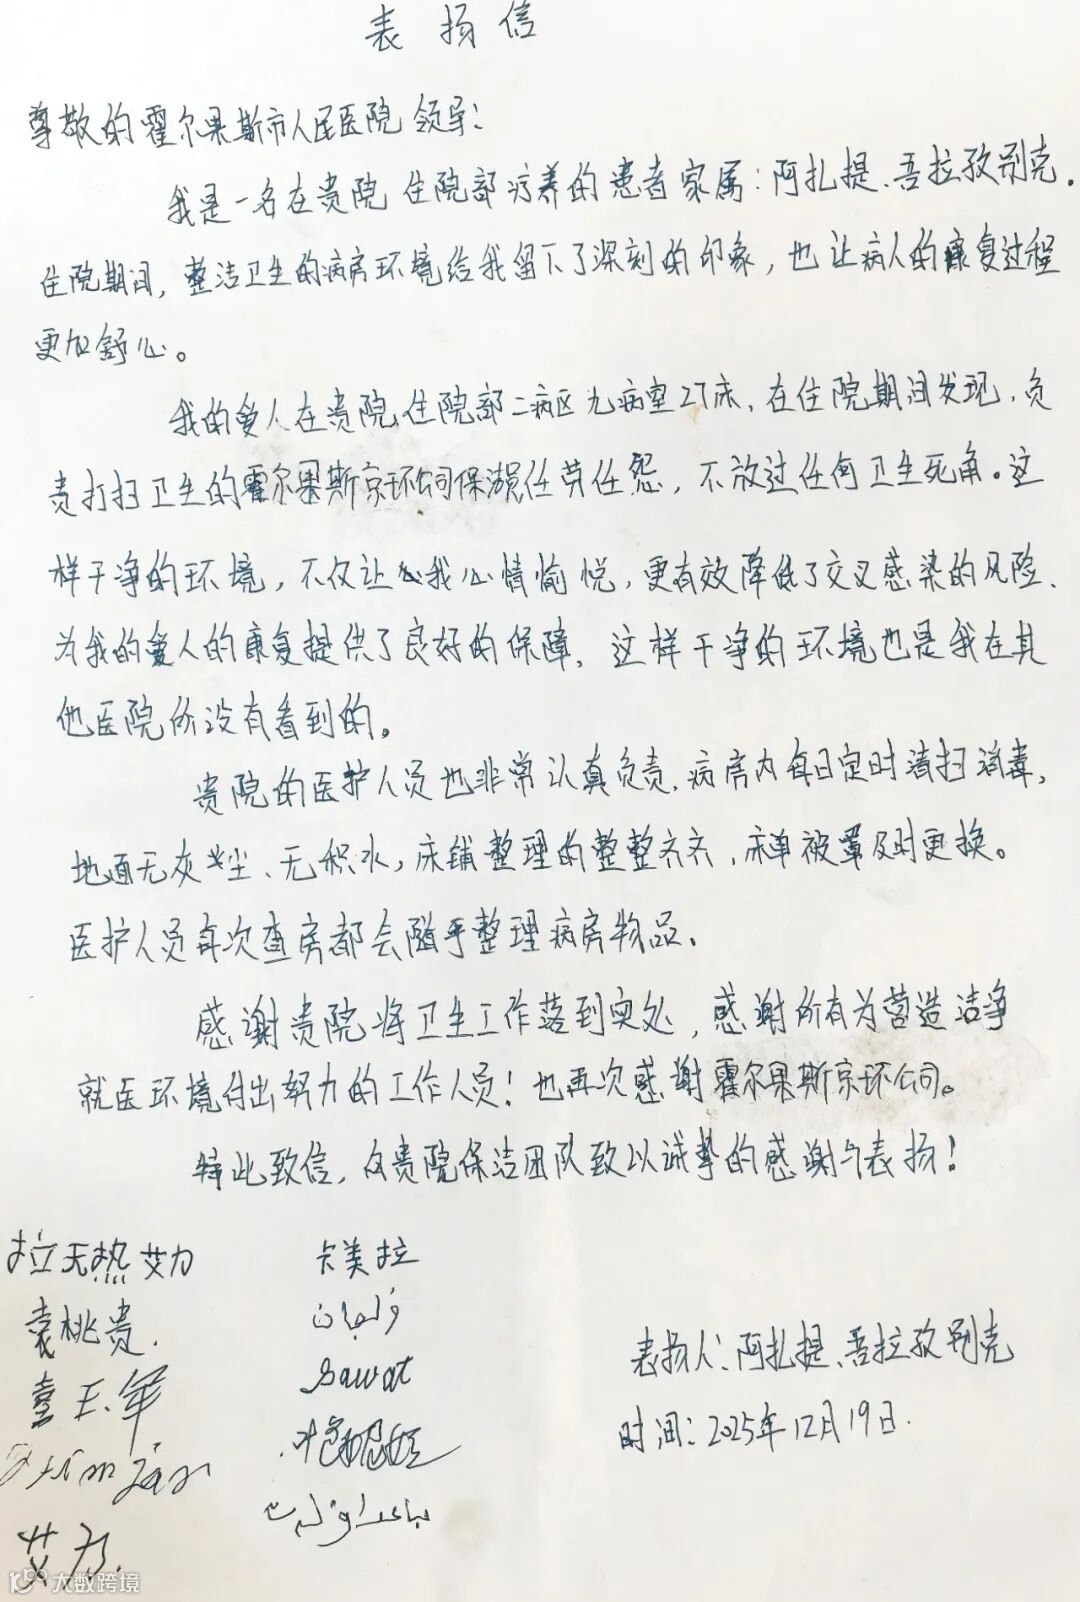 表扬信
尊敬的霍尔果斯市人民医院领导：
我是一名在贵院住院部疗养的患者家属：阿扎提.吾拉孜别克.
住院期间，整洁卫生的病房环境给我留下了深刻的印象，也让病人的康复过程
更加舒心。
我的爱人在贵院住院部二病区九病室27床，在住院期间发现，负
责打扫卫生的霍尔果斯京环公司保洁员任劳任怨，不放过任何卫生死角。这
样干净的环境，不仅让我心情愉悦，更有效降低了交叉感染的风险，
为我的爱人的康复提供了良好的保障，这样干净的环境也是我在其
他医院所没有看到的。
贵院的医护人员也非常认真负责，病房内每日定时清扫消毒，
地面无灰尘、无积水，床铺整理的整整齐齐，床单被罩及时更换。
医护人员每次查房都会随手整理病房物品。
感谢贵院将卫生工作落到实处，感谢所有为营造洁净
就医环境付出努力的工作人员！也再次感谢霍尔果斯京环公司。
特此致信，向贵院保洁团队致以诚挚的感谢与表扬！
拉天热艾力
袁桃贵.
艾力.
卡美拉
Sawat
表扬人：阿扎提.吾拉孜别克
时间：2025年12月19日.
大数跨境